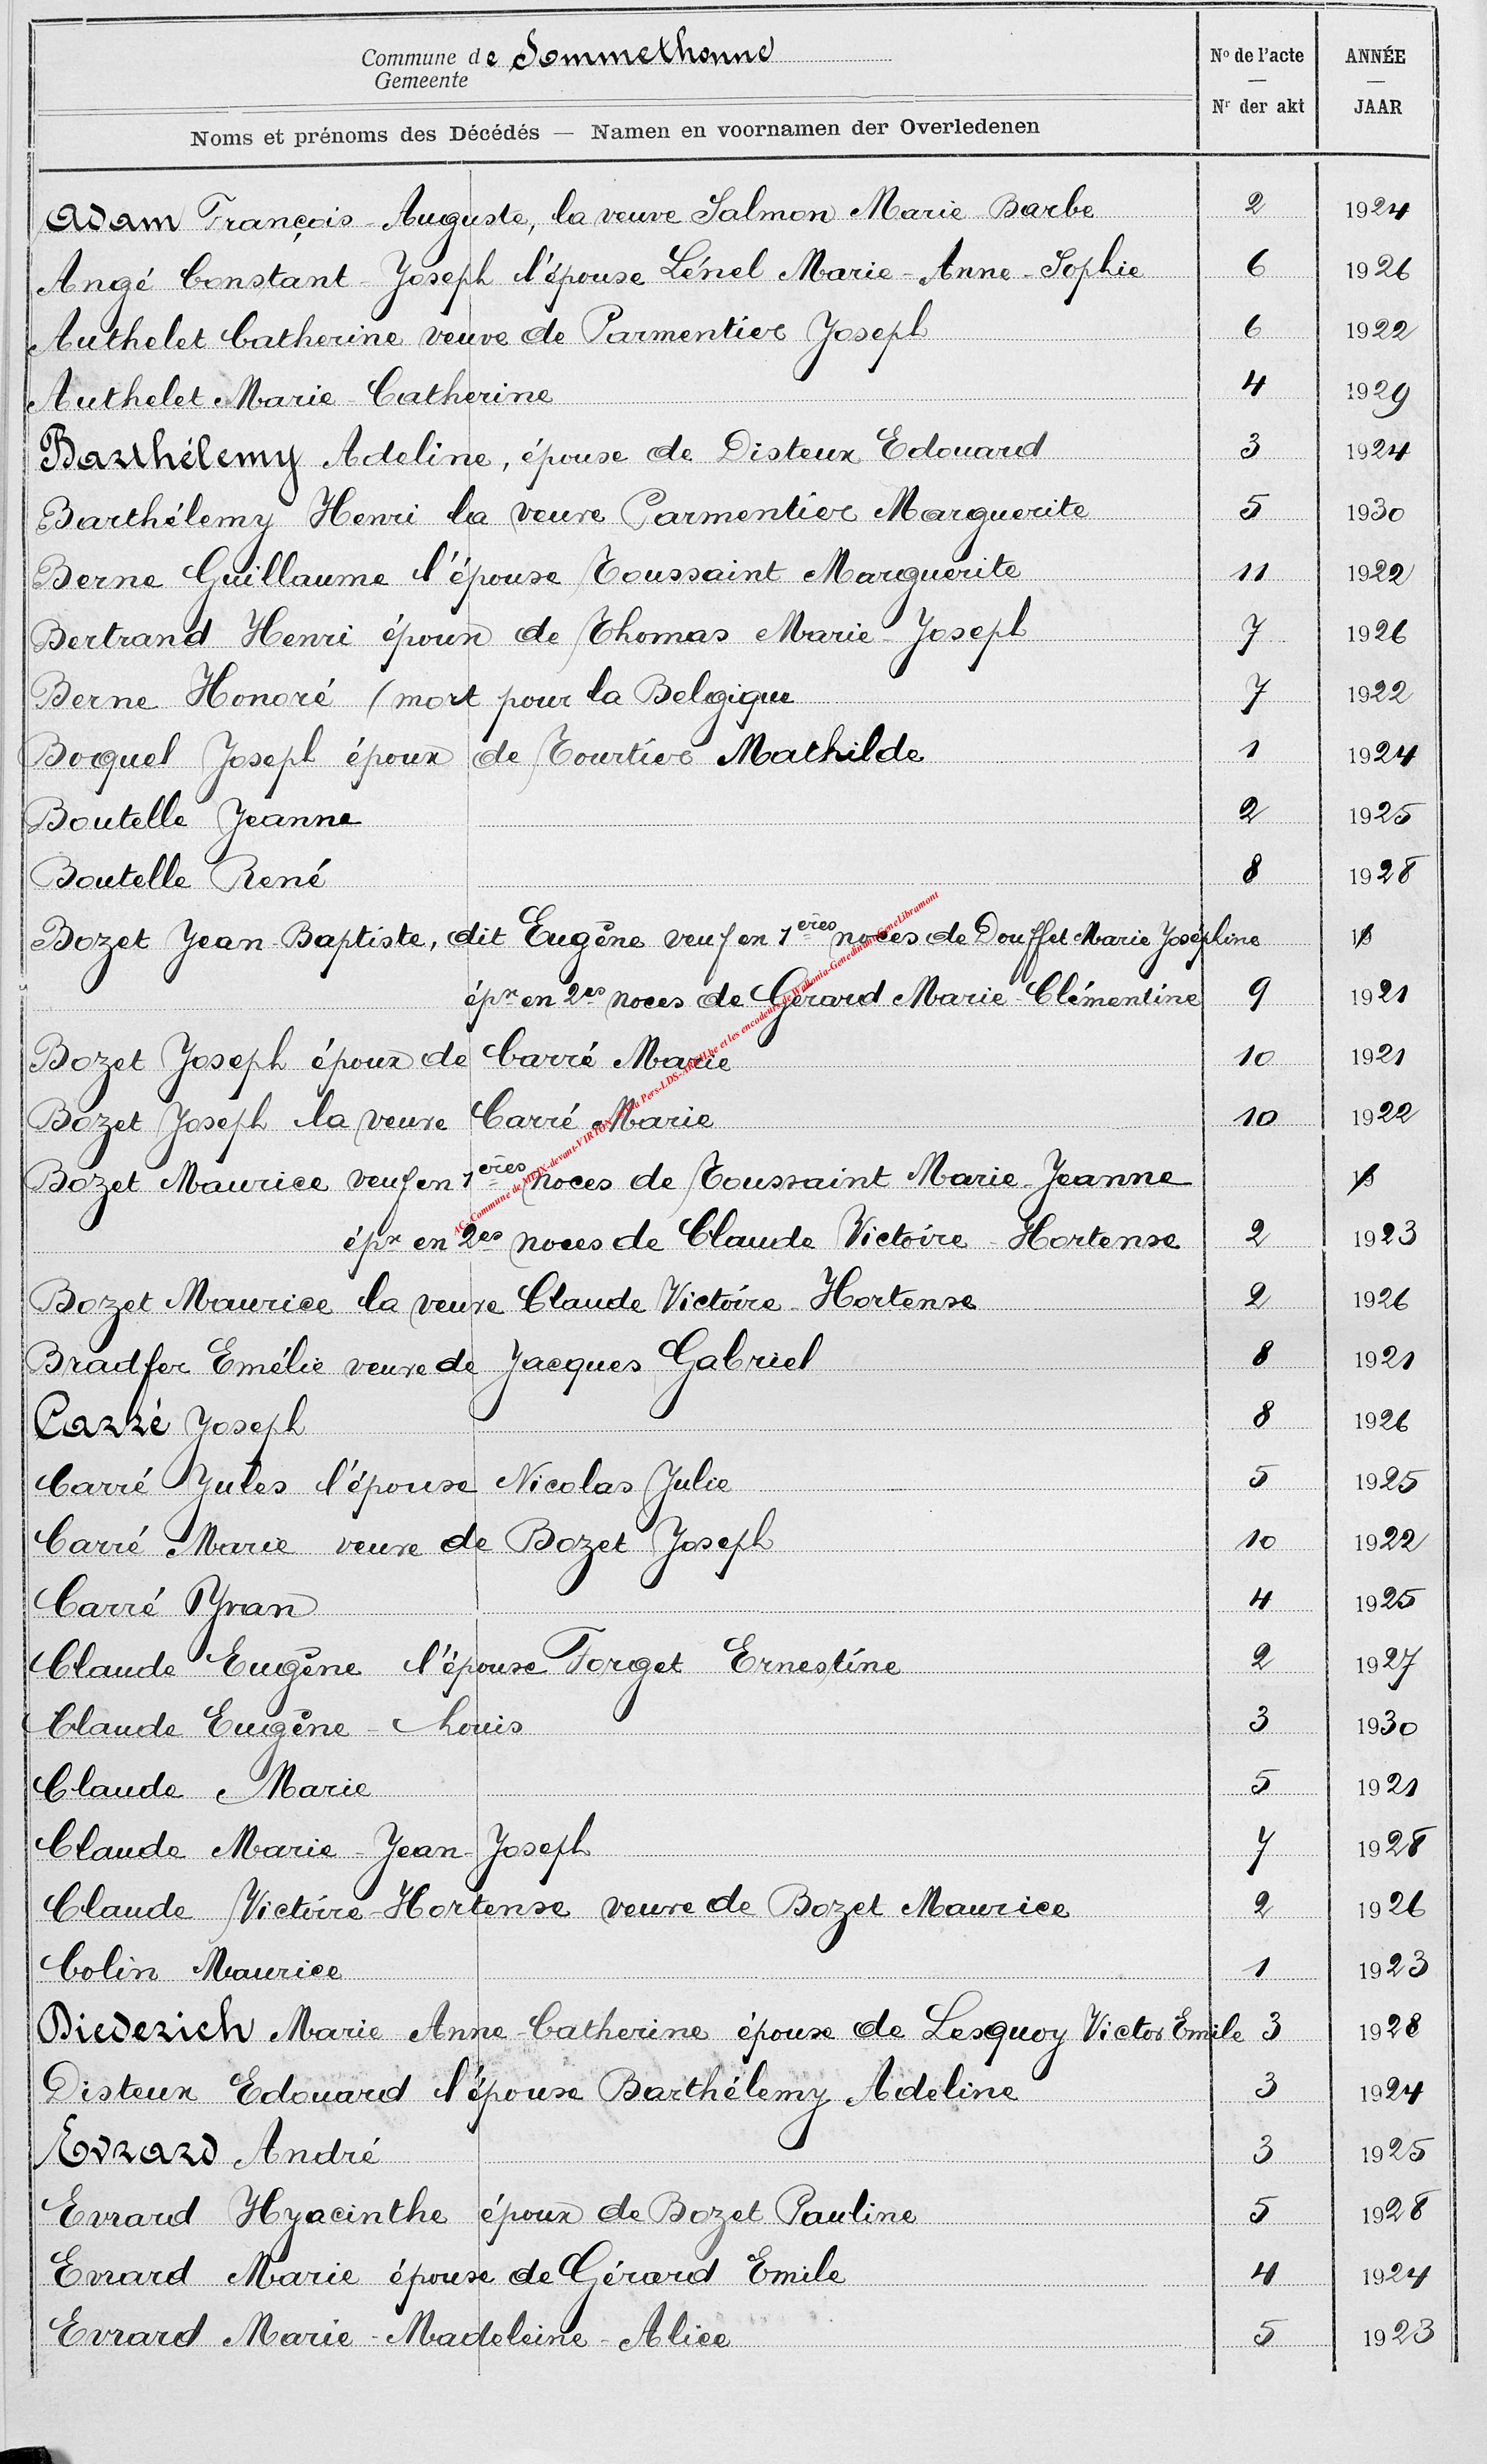 Commune de Sommethonne
Gemeente
Nº de l'acte
ANNÉE
Nr der akt
JAAR
Noms et prénoms des Décédés — Namen en voornamen der Overledenen
Adam François-Auguste, la veuve Salmon Marie Barbe 2 1924
Angé Constant-Joseph l'épouse Lénel Marie-Anne-Sophie 6 1926
Authelet Catherine veuve de Parmentier Joseph 6 1922
Authelet Marie-Catherine 4 1929
Barthélemy Adeline, épouse de Disteux Edouard 3 1924
Barthélemy Henri la veuve Parmentier Marguerite 5 1930
Berne Guillaume l'épouse Toussaint Marguerite 11 1922
Bertrand Henri époux de Thomas Marie-Joseph 7 1926
Berne Honoré (mort pour la Belgique 7 1922
Boquel Joseph époux de Tourtier Mathilde 1 1924
Boutelle Jeanne 2 1925
Boutelle René 8 1928
Bozet Jean-Baptiste, dit Eugène veuf en 1ères noces de Douffet Marie Joséphine 19
épx en 2es noces de Gérard Marie-Clémentine 9 1921
Bozet Joseph époux de Carré Marie 10 1921
Bozet Joseph la veuve Carré Marie 10 1922
Bozet Maurice veuf en 1ères noces de Toussaint Marie-Jeanne 19
épx en 2es noces de Claude Victoire-Hortense 2 1923
Bozet Maurice la veuve Claude Victoire-Hortense 2 1926
Bradfer Emélie veuve de Jacques Gabriel 8 1921
Carré Joseph 8 1926
Carré Jules l'épouse Nicolas Julie 5 1925
Carré Marie veuve de Bozet Joseph 10 1922
Carré Yvan 4 1925
Claude Eugène l'épouse Forget Ernestine 2 1927
Claude Eugène-Louis 3 1930
Claude Marie 5 1921
Claude Marie-Jean-Joseph 7 1928
Claude Victoire-Hortense veuve de Bozet Maurice 2 1926
Colin Maurice 1 1923
Diederich Marie Anne-Catherine épouse de Lesquoy Victor Emile 3 1928
Disteux Edouard l'épouse Barthélemy Adeline 3 1924
Evrard André 3 1925
Evrard Hyacinthe époux de Bozet Pauline 5 1928
Evrard Marie épouse de Gérard Emile 4 1924
Evrard Marie-Madeleine-Alice 5 1923